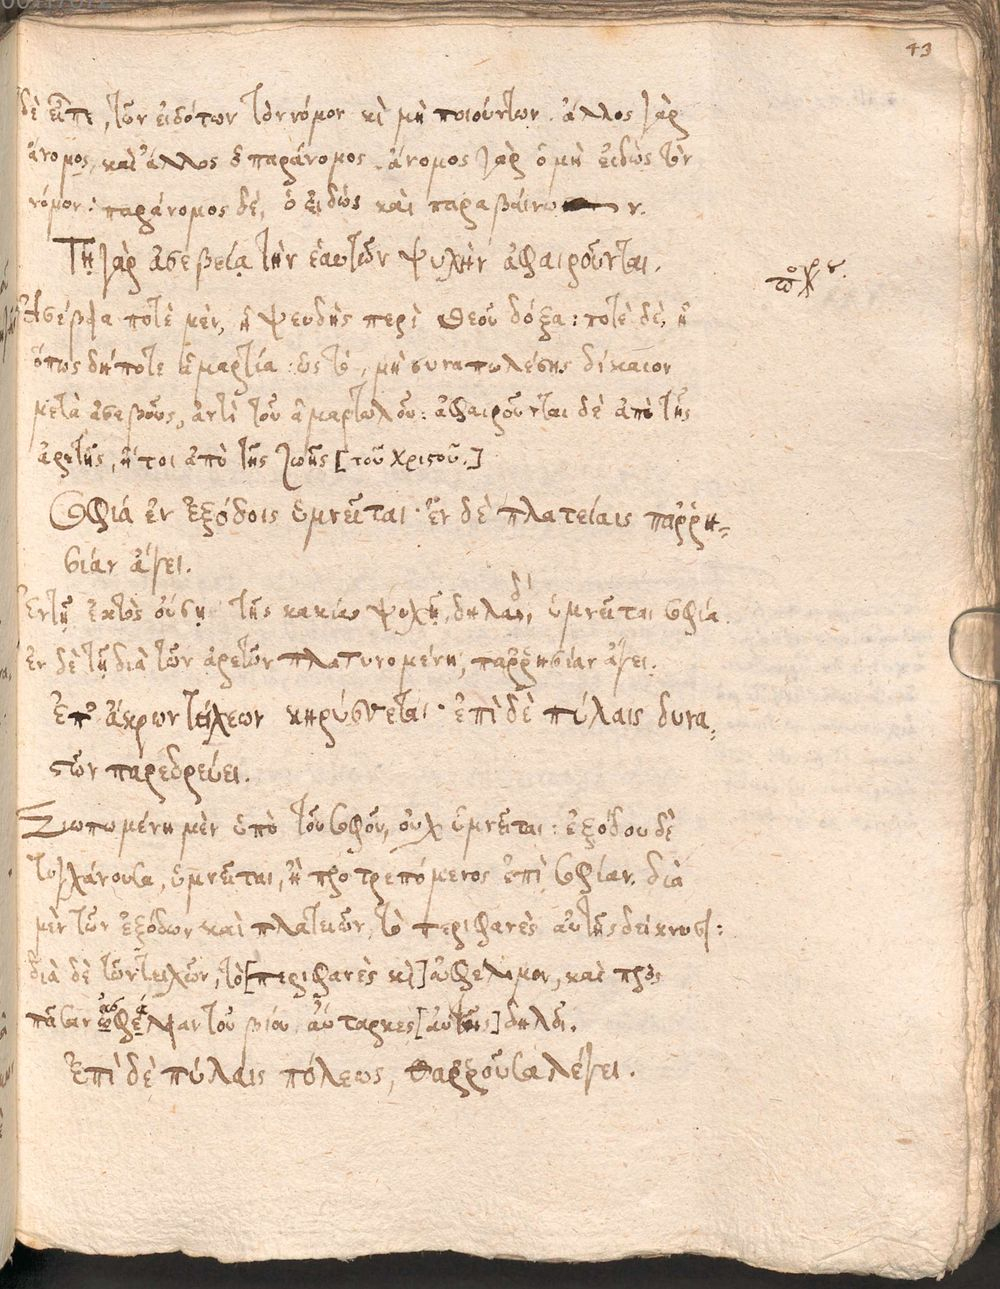 43
δὲ εἶπε, τῶν εἰδότων τὸν νόμον κὶ μὴ ποιούντων. ἄλλος γὰρ
ἄνομος, καὶ ἄλλος ὁ παράνομος. ἄνομος γὰρ ὁ μὴ εἰδὼς τὸν
νόμον: παράνομος δέ, ὁ εἰδώς καὶ παραβαίνων.
Τῇ γὰρ ἀσεβείᾳ τὴν ἑαυτῶν ψυχὴν ἀφαιροῦνται.
Ἀσέβεια ποτὲ μὲν, ἡ ψευδὴς περὶ Θεοῦ δόξα: ποτὲ δὲ, ἡ
ὅπως δήποτε ἁμαρτία: ὡς τό, μὴ συναπωλέσης δίκαιον
μετὰ ἀσεβοῦς, ἀντὶ τοῦ ἁμαρτωλοῦ: ἀφαιροῦνται δὲ ἀπὸ τῆς
ἀρετῆς, ἤτοι ἀπὸ τῆς ζωῆς [τοῦ Χριστοῦ.]
Σοφιά ἐν ἐξόδοις ὑμνεῖται· ἐν δὲ πλατείαις παῤῥη-
σιάν ἄγει.
Ἐν τῇ ἐκτὸς οὔσῃ τῆς κακίας ψυχῇ, δηλαδὴ, ὑμνεῖται σοφία.
ἐν δὲ τῇ διὰ τῶν ἀρετῶν πλατυνομένη, παῤῥησίαν ἄγει.
Ἐπ' ἄκρων τειχέων κηρύσσεται· ἐπὶ δὲ πύλαις δυνα-
στῶν παρεδρεύει.
Σιωπωμένη μὲν ὑπὸ τοῦ σοφοῦ, οὐχ ὑμνεῖται: ἐξόδου δὲ
τυγχάνουσα, ὑμνεῖται, ἢ προτρεπόμενος ἐπὶ σοφίαν. διὰ
μὲν τῶν ἐξόδων καὶ πλατειῶν, τὸ περιφανὲς αὐτῆς δείκνυσι:
διὰ δὲ τῶν τειχῶν, τὸ [περιφανὲς κὶ] ὠφέλιμον, καὶ πρὸς
πᾶσαν ὠφέλειαν τοῦ βίου αὔταρκες [αὐτῆς] δηλοῖ.
Ἐπὶ δὲ πύλαις πόλεως, θαῤῥοῦσα λέγει.